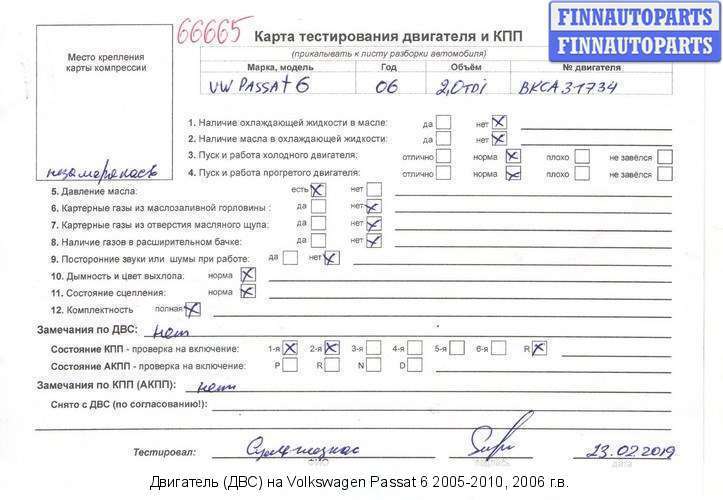 66665
Карта тестирования двигателя и КПП
FINNAUTOPARTS
FINNAUTOPARTS
(прикалывать к листу разборки автомобиля)
Место крепления
карты компрессии
Марка, модель Год Объём № двигателя
VW PASSAT 6 06 2,0TDI BKCA31734
1. Наличие охлаждающей жидкости в масле: да нет
2. Наличие масла в охлаждающей жидкости: да нет
3. Пуск и работа холодного двигателя: отлично норма плохо не завёлся
4. Пуск и работа прогретого двигателя: отлично норма плохо не завёлся
5. Давление масла: есть нет
6. Картерные газы из маслозаливной горловины : да нет
7. Картерные газы из отверстия масляного щупа: да нет
8. Наличие газов в расширительном бачке: да нет
9. Посторонние звуки или шумы при работе: да нет
10. Дымность и цвет выхлопа: норма
11. Состояние сцепления: норма
12. Комплектность полная
Замечания по ДВС: нет
Состояние КПП - проверка на включение: 1-я 2-я 3-я 4-я 5-я 6-я R
Состояние АКПП - проверка на включение: P R N D
Замечания по КПП (АКПП): нет
Снято с ДВС (по согласованию!):
Тестировал: 23.02.2019
ФИО подпись дата
Двигатель (ДВС) на Volkswagen Passat 6 2005-2010, 2006 г.в.